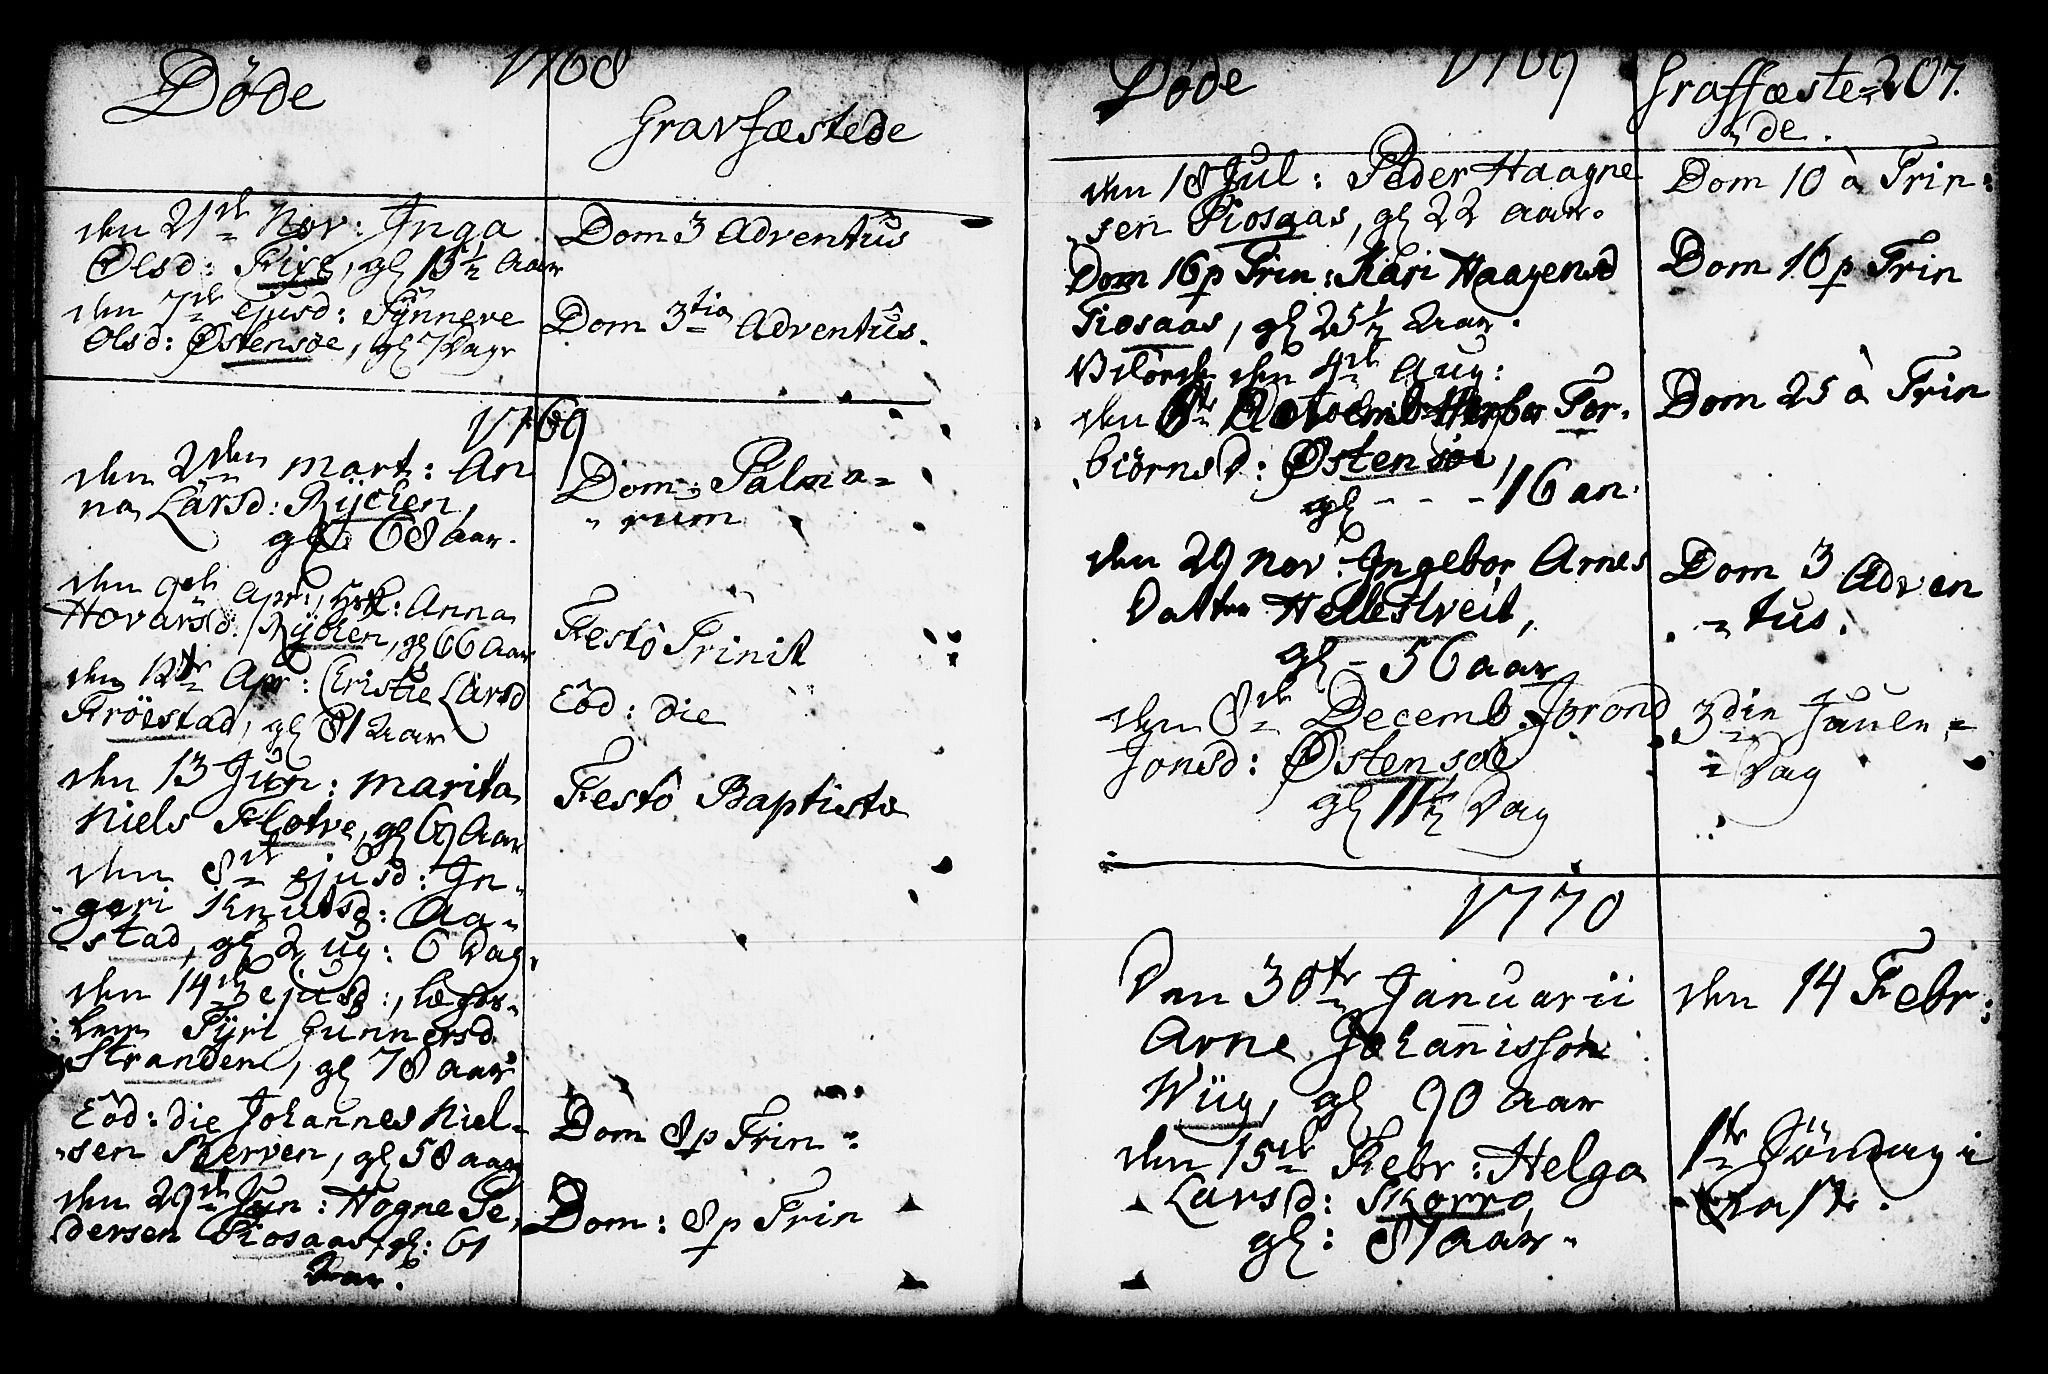 Döde
1768
Gravfæstede
den 21de Nov: Inga
Olsd: Fixe, gl 15½ Aar
Dom 3 Adventûs
den 7de ejusd: Synneve
Olsd: Østensøe, gl 7 Dage
Dom 3tia Adventûs.
1769
den 2den Mart: An
na Larsd: Rÿcken,
gl 68 Aar.
Dom: Palma=
rum
den 9de Apr: Anna
Hovarsd: Rÿcken, gl 66 Aar
Festô Trinit
den 12te Apr: Christie Larsd
Fröestad, gl 81 Aar
Eôd: die
den 13 Jûn: Marita
Niels Flotve, gl 69 Aar
Festô Baptistæ
den 8de ejusd: In=
geri Knutsd: Aa=
stad, gl 2 ug: 6 Dag.
den 14de ejusd:, Lægds=
lem Tÿri Gunnersd
Stranden, gl 78 aar
Eôd: die Johannes Niel=
sen Berven, gl 58 aar
Dom 8 p Trin
den 29de Jun: Hogne Pe
dersen Fiosaas, gl: 61
Aar.
Dom: 8 p Trin
Döde
1769
Graffæste= 207.
de.
den 18 Jul: Peder Haagne
sen Fiosaas, gl 22 Aar.
Dom 10 à Trin:
Dom 16 p Trin: Kari Haagensd
Fiosaas, gl 25½ Aar.
Dom 16 p Trin
den 4de Aug:
den Tor=
biörnsd: Østensöe,
gl - - - 16 an.
Dom 25 à Trin
den 29 Nov: Ingebor Arnes
Datter Hellestveit,
gl - 56 aar
Dom 3 Adven
tus.
den 8de Decemb: Jorond
Jonsd: Østensøe
gl 11½ Dag
3die Jaule=
Dag
1770
Den 30te Januarii
Arne Johannisson
Wiig, gl 90 Aar
den 14 Febr:
den 15de Febr: Helga
Larsd: Skorro,
gl: 81 aar.
1te Söndag i
Faste.